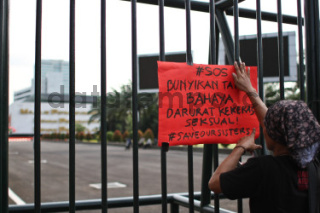 #SOS
BUNYIKAN TANDA
BAHAYA
DARURAT KEKERASAN
SEKSUAL!
#SAVEOURSISTER